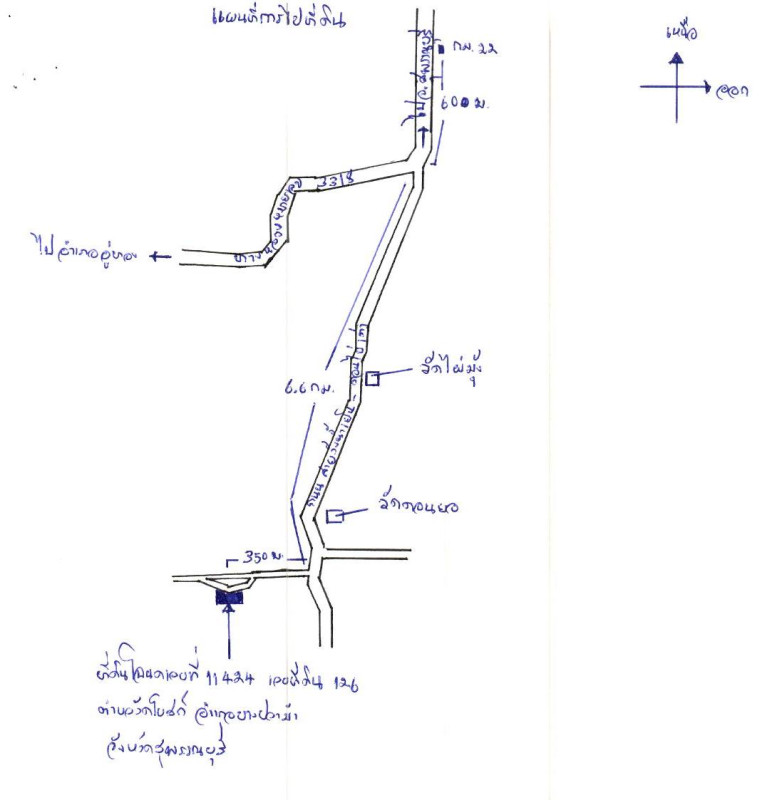 แผนที่การไปที่ดิน
เหนือ
ออก
กม. 22
ไป จ. สุพรรณบุรี
600 ม.
ทางหลวงหมายเลข 3318
ไปอำเภออู่ทอง
6.6 กม.
วัดไผ่มุ้ง
วัดดอนหอ
350 ม.
ที่ดินโฉนดเลขที่ 11424 เลขที่ดิน 126
ตำบลวัดโบสถ์ อำเภอบางปลาม้า
จังหวัดสุพรรณบุรี